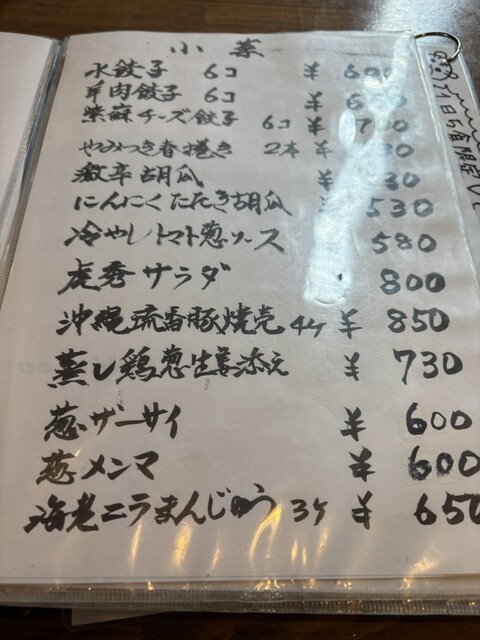 小菜
水餃子 6コ ¥ 600
羊肉餃子 6コ ¥
紫蘇チーズ餃子 6コ ¥ 700
やみつき春捲き 2本 ¥
激辛胡瓜 ¥
にんにくたたき胡瓜 ¥ 530
冷やしトマト葱ソース 580
虎秀サラダ 800
沖縄琉香豚焼売 4ケ ¥ 850
蒸し鶏葱生姜添え ¥ 730
葱ザーサイ ¥ 600
葱メンマ ¥ 600
海老ニラまんじゅう 3ケ ¥ 650